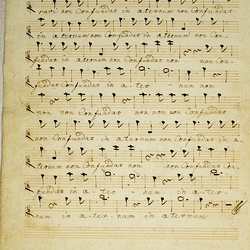 non confundar in aeternum non confundar
in aeternum non confundar in aeternum non con-
fundar in aeternum non confundar non non con-
fundar non confundar in aeter - num
non non confundar non non non confundar
non non confundar in aeternum non confundar in ae
ternum non confundar non confundar non con
fundar in aeter - num in aeter
num in aeternum in aeternum